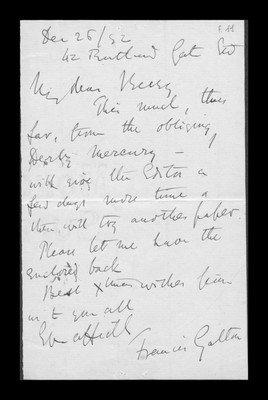 Dec 26/92
42 Rutland Gate SW
My dear Bessy
This much, thus
far, from the obliging
Derby Mercury –
will give the Editor a
few days more time &
then will try another paper.
Please let me have the
enclosed back
Best Xmas wishes from
us to you all
Ever affectly
Francis Galton